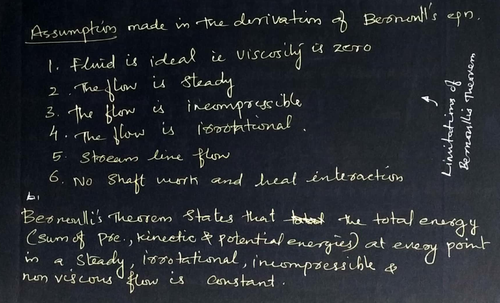 Assumption made in the derivation of Bernoulli's eqn.
1. Fluid is ideal ie viscosity is zero
2. The flow is steady
3. The flow is incompressible
4. The flow is irrotational.
5. Stream line flow
6. No shaft work and heat interaction
Limitations of
Bernoullis Theorem
Bernoulli's Theorem States that the total energy
(sum of pre., kinectic & potential energies) at every point
in a steady, irrotational, incompressible &
non viscous flow is constant.